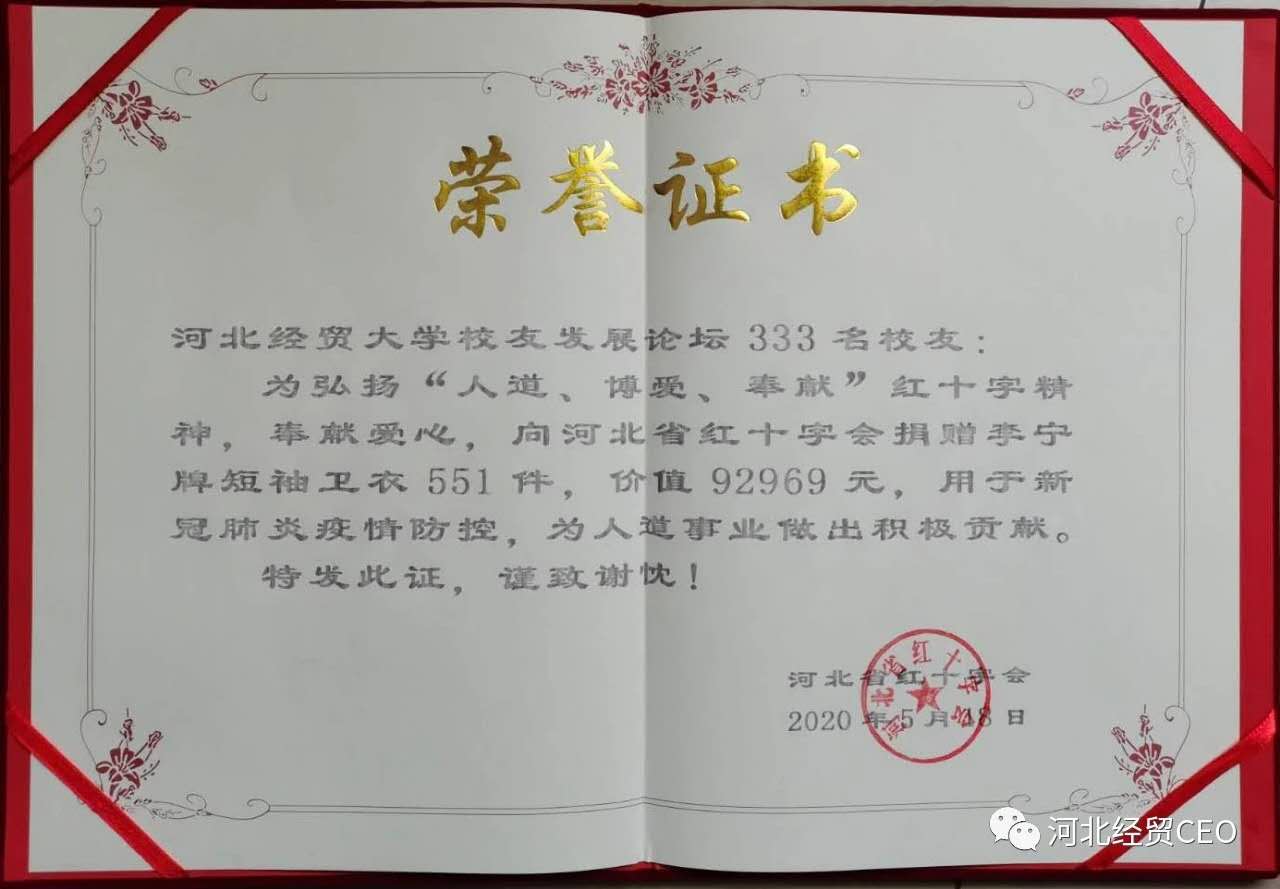 荣誉证书
河北经贸大学校友发展论坛 333 名校友：
为弘扬“人道、博爱、奉献”红十字精
神，奉献爱心，向河北省红十字会捐赠李宁
牌短袖卫衣 551 件，价值 92969 元，用于新
冠肺炎疫情防控，为人道事业做出积极贡献。
特发此证，谨致谢忱！
河北省红十字会
2020 年 5 月 18 日
河北省红十字会
河北经贸CEO